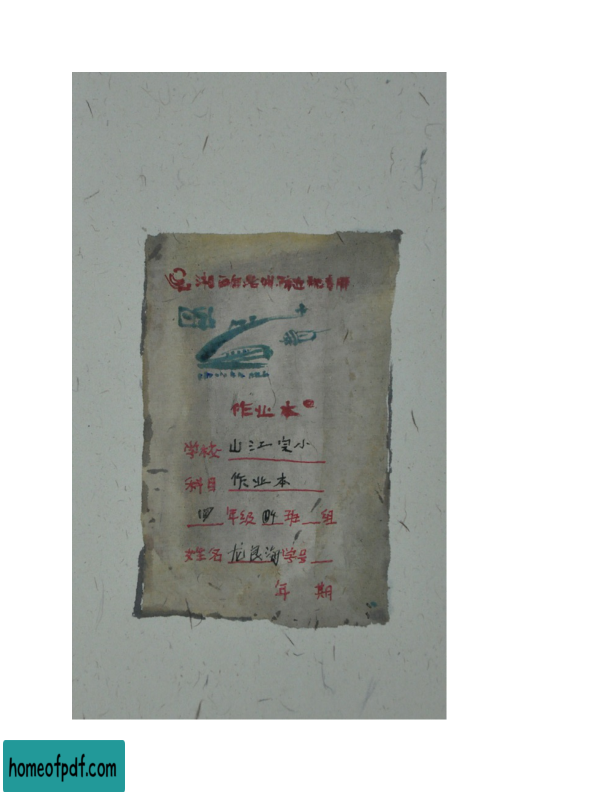 作业本
学校 山江完小
科目 作业本
四 年级 84 班 组
姓名 龙良海 学号
年 期
homeofpdf.com